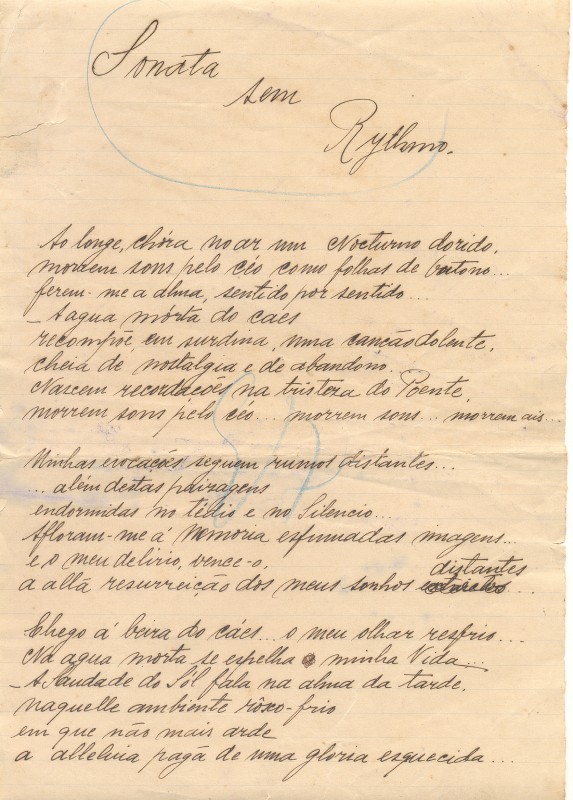 Sonata
sem
Rythmo.
Ao longe, chóra no ar um Nocturno dorido,
morrem sons pelo céo como folhas de Outono...
ferem-me a alma, sentido por sentido...
- A agua mórta do caes
recompõe, em surdina, uma canção dolente,
cheia de nostalgia e de abandono...
Nascem recordações na tristeza do Poente,
morrem sons pelo céo... morrem sons... morrem ais...
Minhas evocações seguem rumos distantes...
... além destas paizagens
endormidas no tédio e no Silencio...
Afloram-me á Memoria esfumadas imagens...
e o meu delirio, vence-o,
distantes
a allã resurreição dos meus sonhos ...
Chego á beira do cáes... o meu olhar resfrio...
Na agua morta se espelha a minha Vida...
- A Saudade do Sól fala na alma da tarde,
naquelle ambiente rôxo-frio
em que não mais arde
a alleluia pagã de uma gloria esquecida...